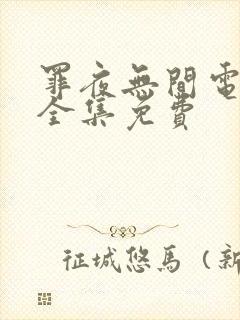 罪夜無間電
全集免費
征城悠馬（新